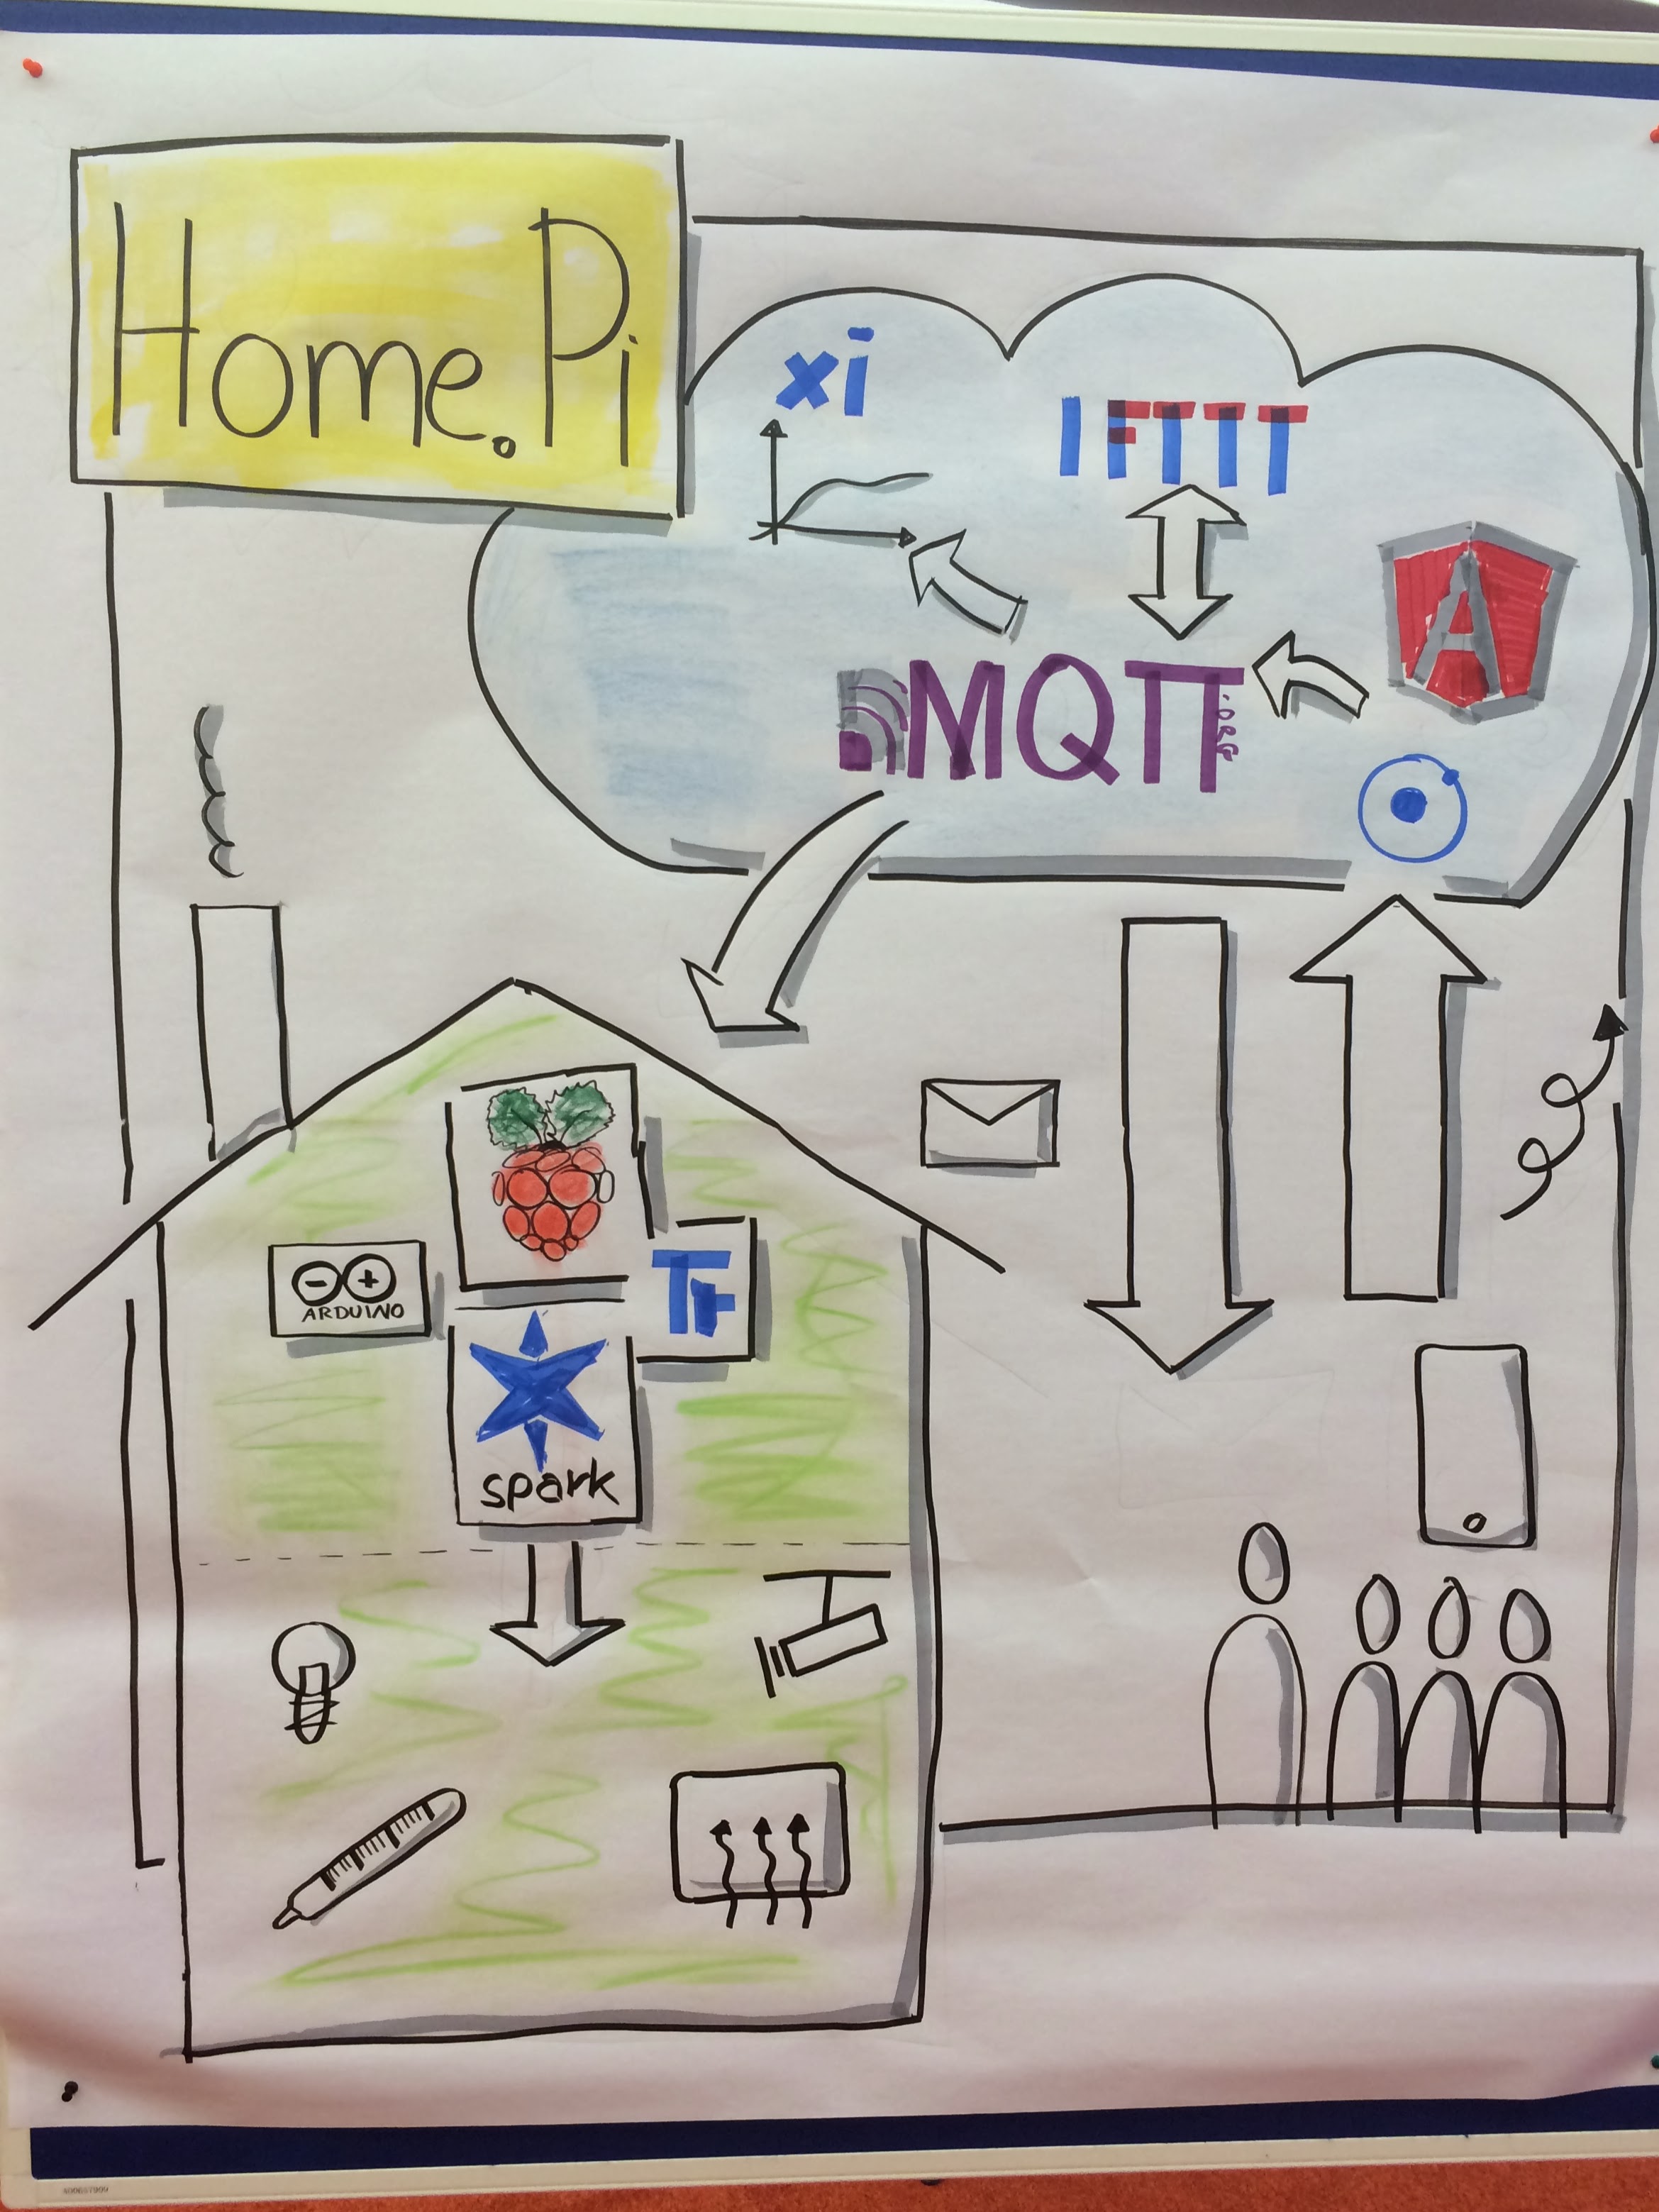 Home.Pi
xi
IFTTT
MQTT
.ORG
A
ARDUINO
TF
spark